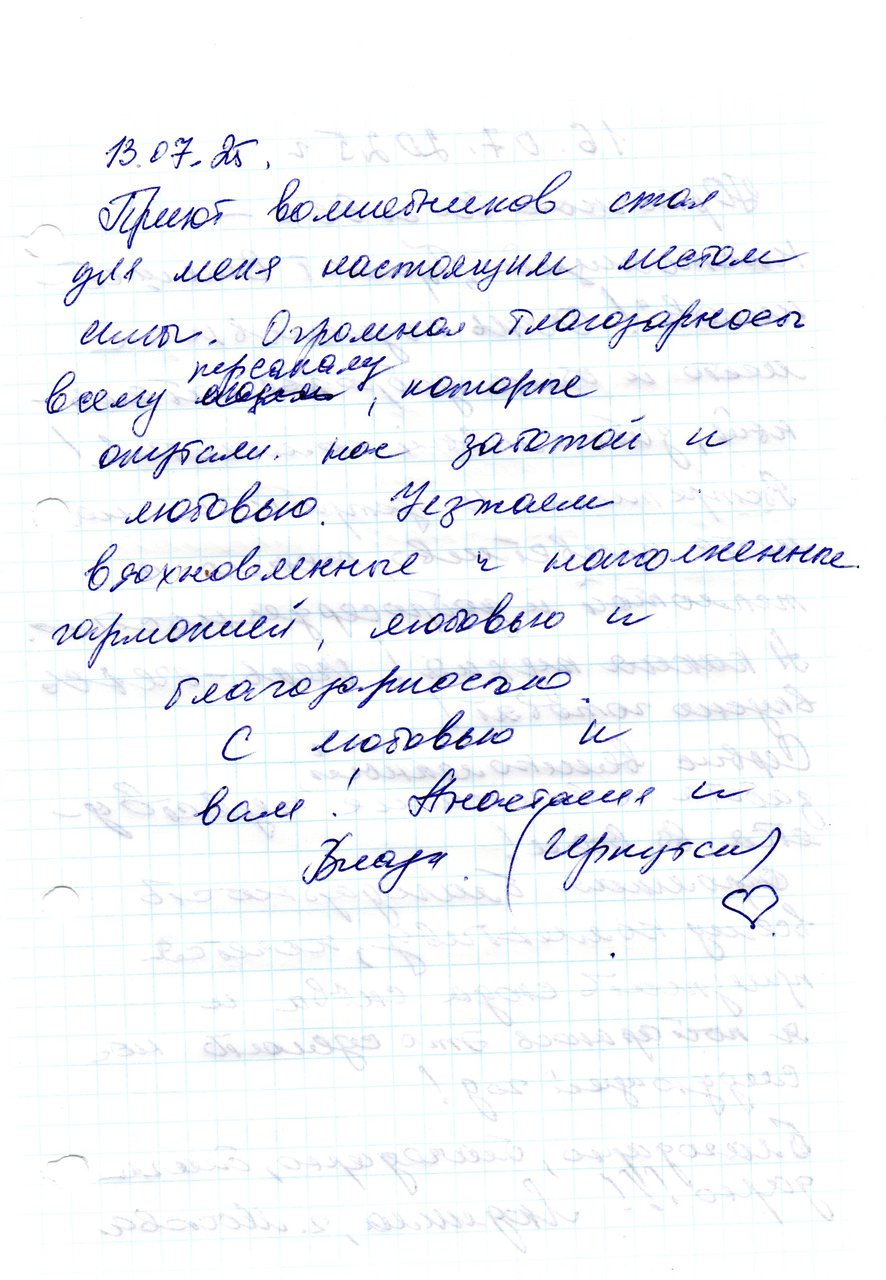 13.07.25.
Приют волшебников стал
для меня настоящим местом
силы. Огромная благодарность
персаналу
всему , которые
окутали нас заботой и
любовью. Уезжаем
вдохновленные и наполненные
гармонией, любовью и
благодарностью.
С любовью к
вам! Анастасия и
Влада (Иркутск)